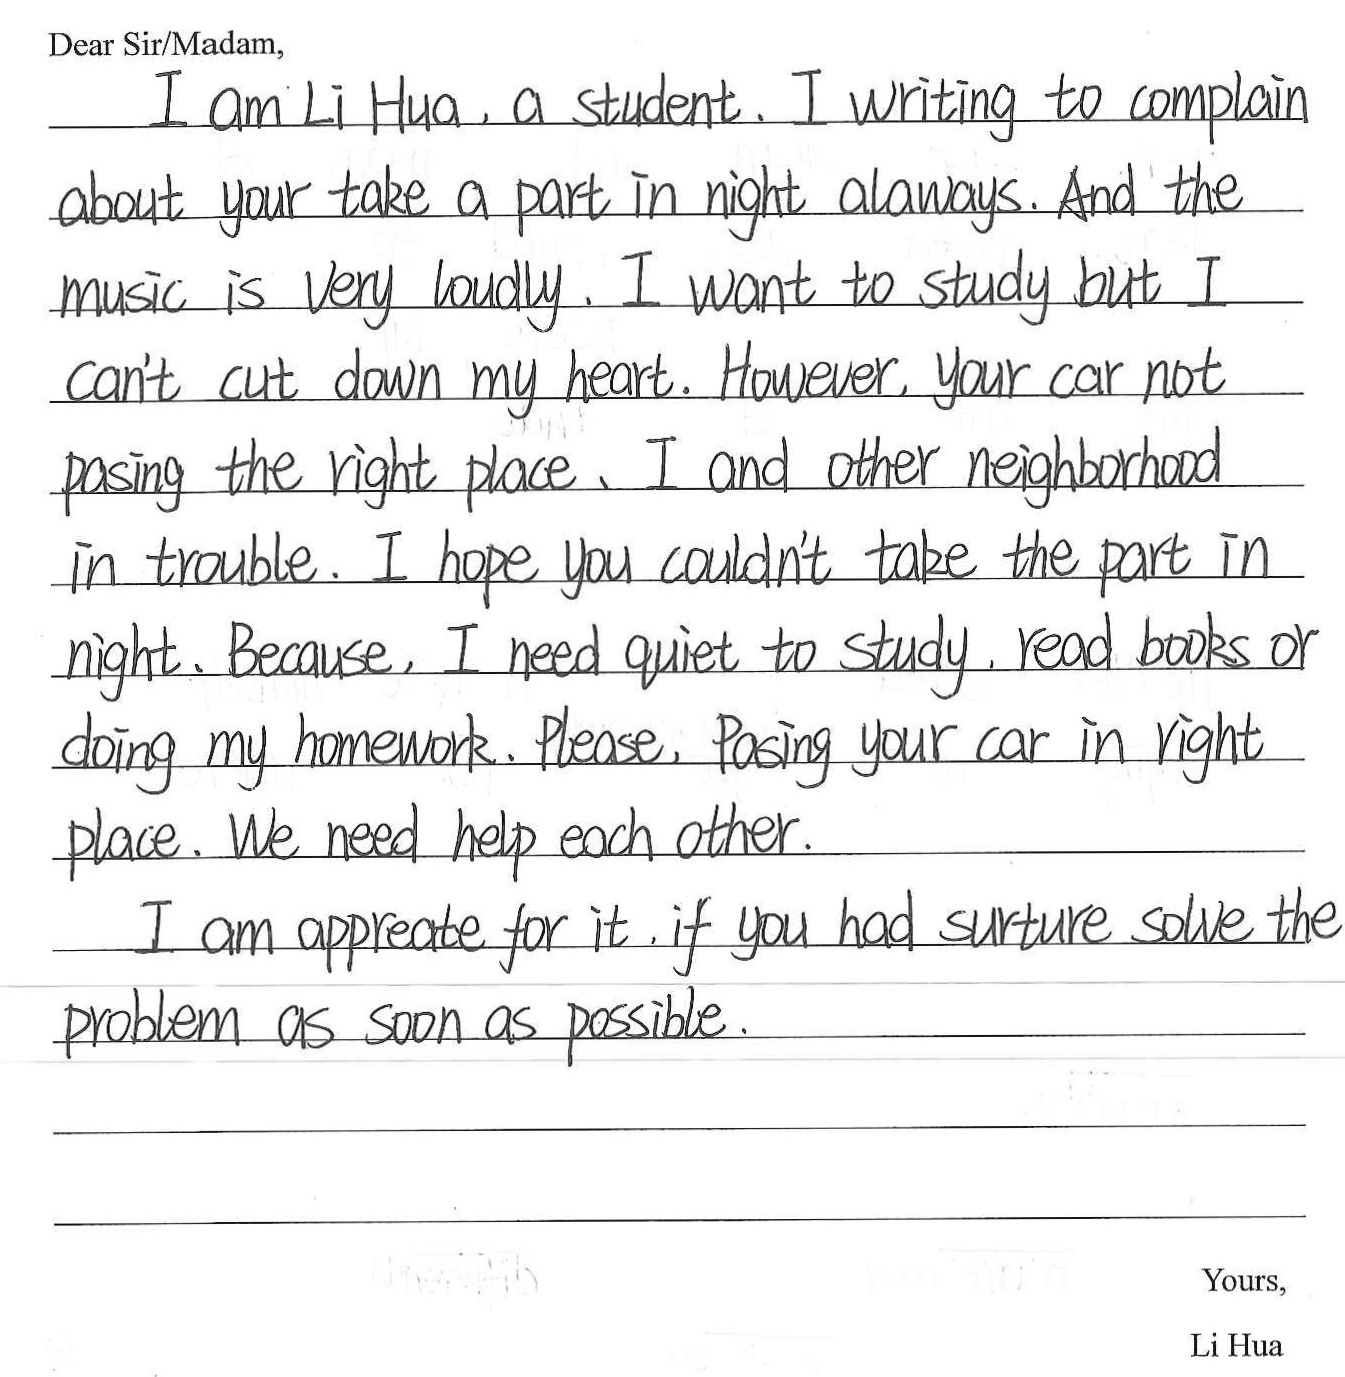 Dear Sir/Madam,
I am Li Hua, a student. I writing to complain
about your take a part in night alaways. And the
music is very loudly. I want to study but I
can't cut down my heart. However, your car not
pasing the right place. I and other neighborhood
in trouble. I hope you couldn't take the part in
night. Because, I need quiet to study, read books or
doing my homework. Please, Pasing your car in right
place. We need help each other.
I am appreate for it, if you had surture solve the
problem as soon as possible.
Yours,
Li Hua